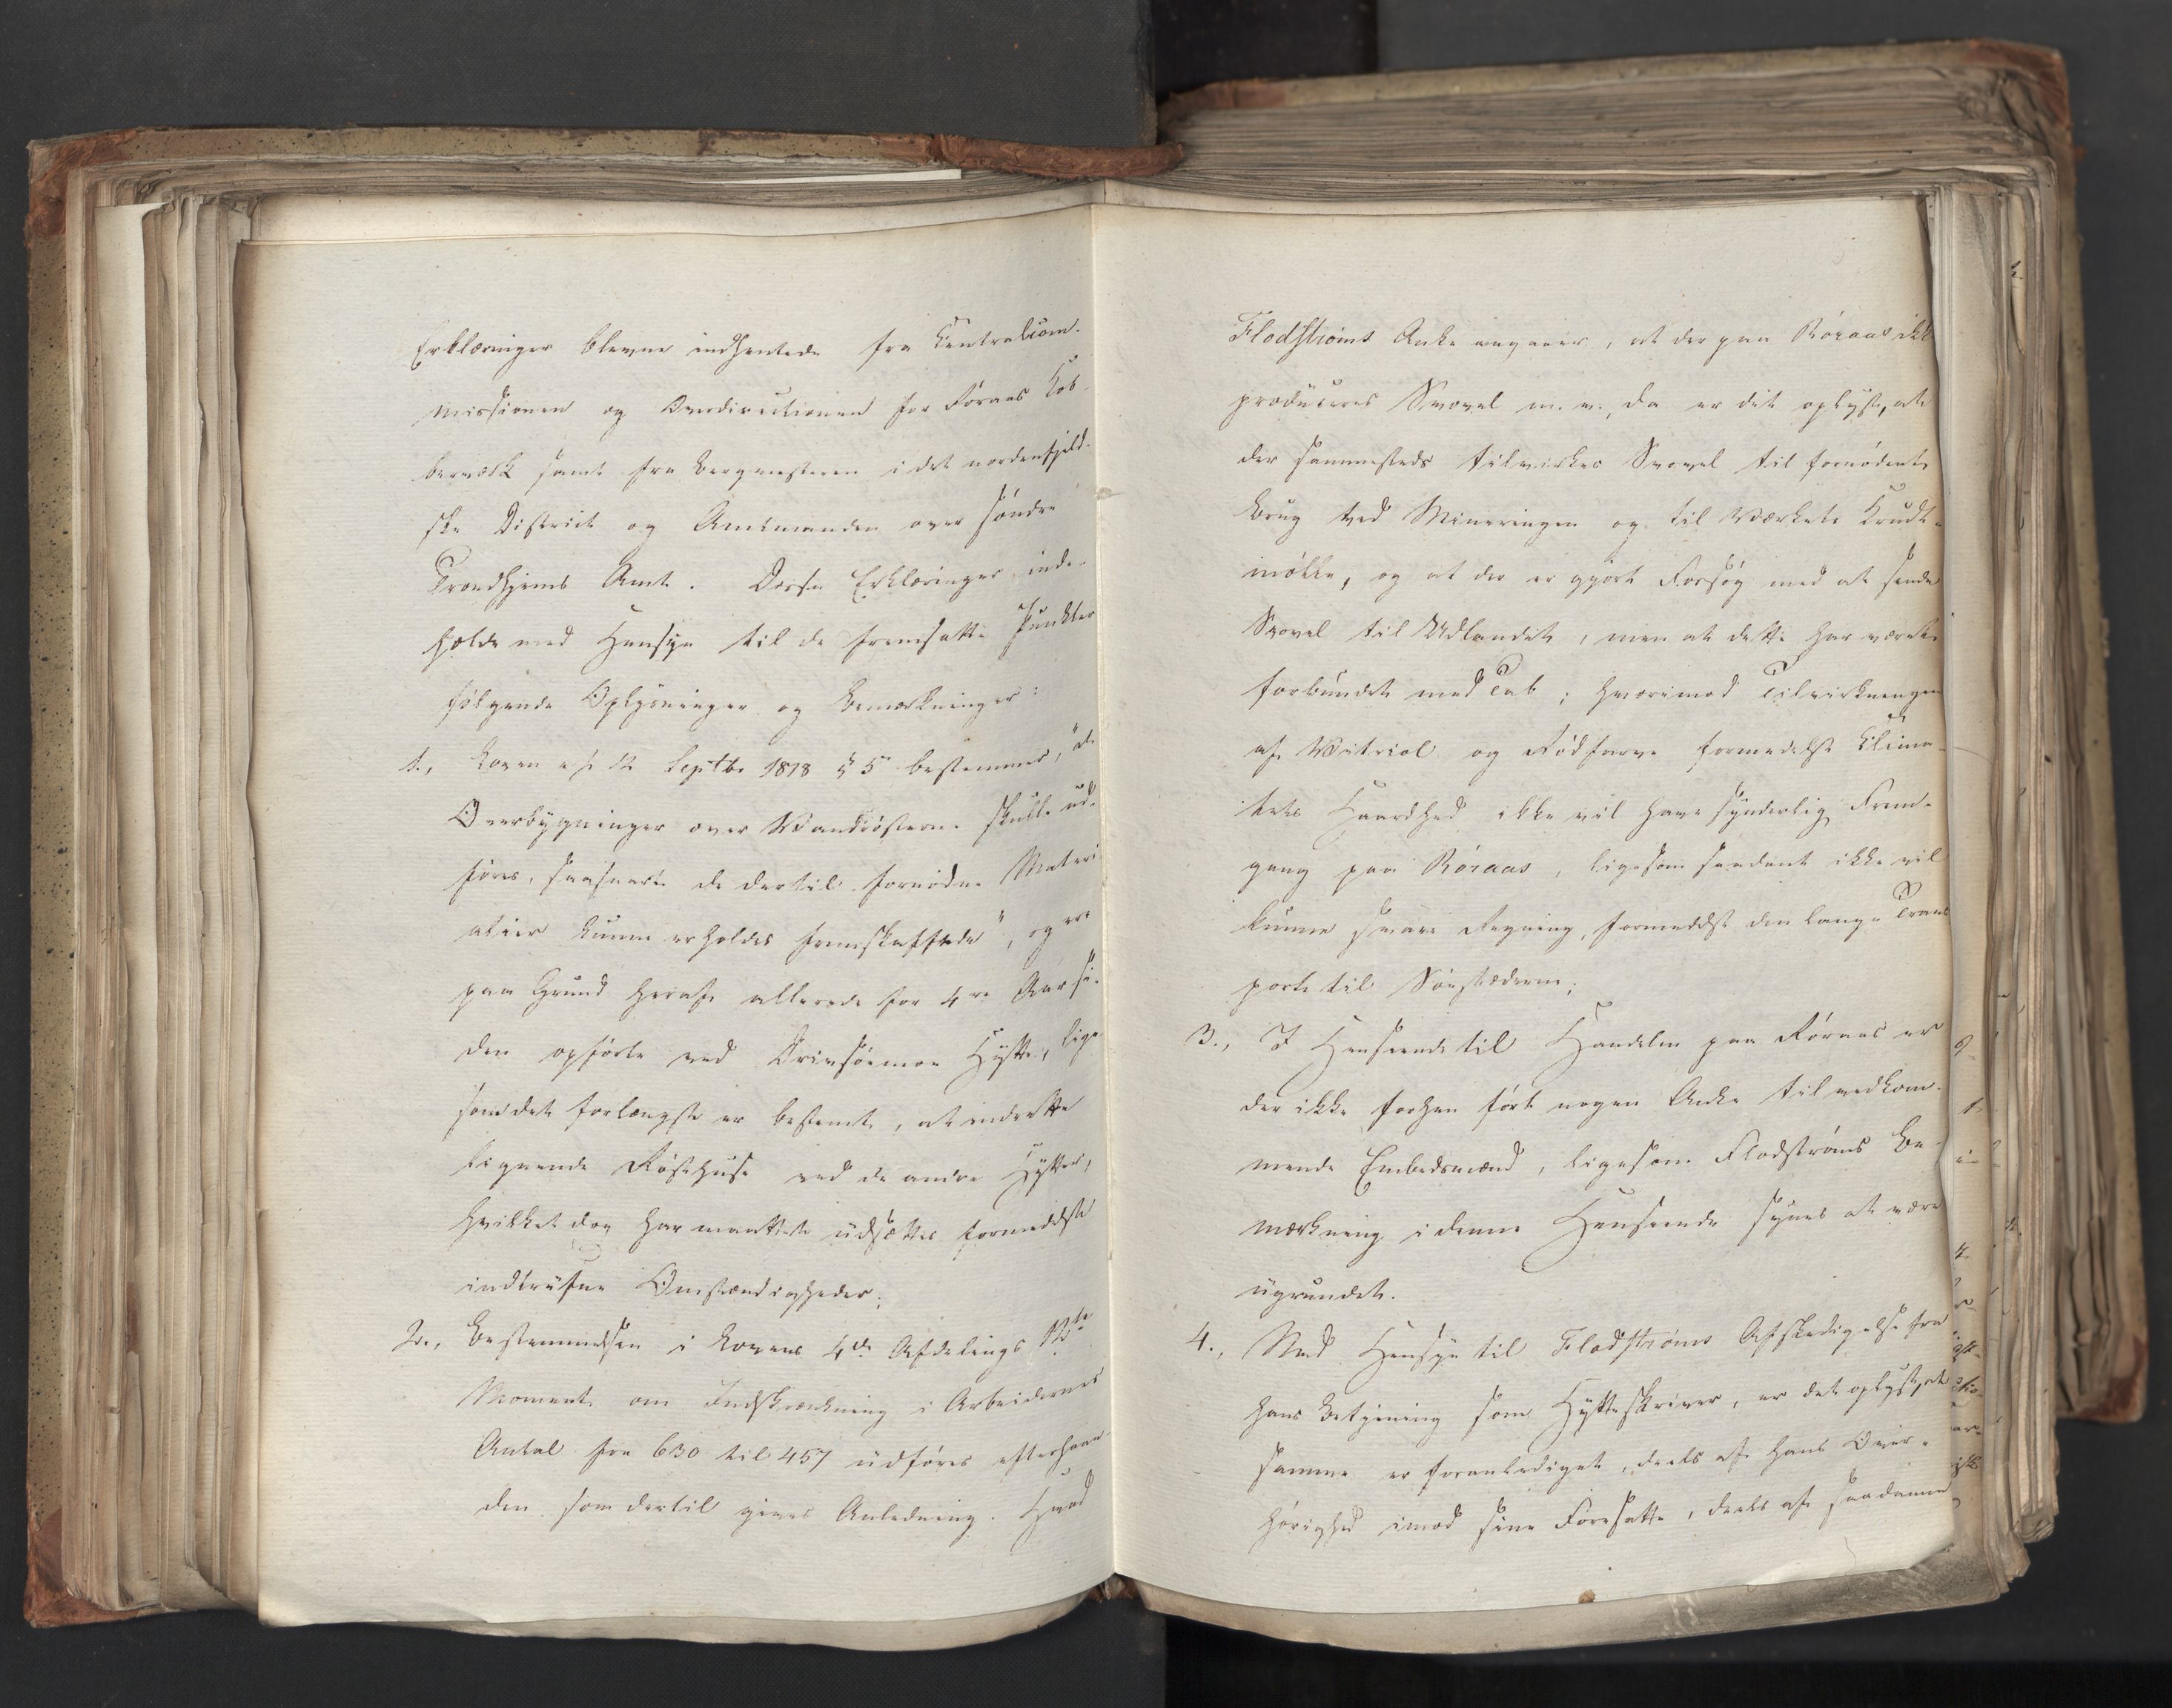 Erklæringer blevne indhentede fra Centralcom-
missionen og Overdirectionen for Røraas Kob-
berværk samt fra Bergmesteren i det nordenfjeld-
ske District og Amtmanden over søndre
Trondhjems Amt. Disse Erklæringer inde-
holde med Hensyn til de fremsatte Punkter
følgende Oplysninger og Bemærkninger:
1., Loven af 12 Septbr 1818 § 5 bestemmer, "at
Overbygninger over Vandrøsterne skulle ud-
føres, saasnart de dertil fornødne Materi
alier kunne erholdes fremskaffede", og ere
paa Grund heraf allerede for 4re Aar si-
den opførte ved Drivsøemoe Hytte, lige
som det forlængst er bestemt, at indrette
lignende Røsthuse ved de andre Hytter,
hvilket dog har maattet udsættes formedelst
indtrufne Omstændigheder;
2., Bestemmelsen i Lovens 4de Afdelings 12te
Moment om Indskrænkning i Arbeidernes
Antal fra 630 til 457 udføres efterhaan-
den som dertil gives Anledning. Hvad
Flodstrøms Anke angaaer, at der paa Røraas ikke
produceres Svovel m. v., da er det oplyst, at
der sammesteds tilvirkes Svovel til fornødent
Brug ved Mineringen og til Værkets Krudt-
mølle, og at der er gjort Forsøg med at sende
Svovel til Udlandet, men at dette har været
forbundet med Tab; hvorimod Tilvirkningen
af Vitriol og Rødfarve formedelst Clima-
tets Haardhed ikke vil have synderlig Frem-
gang paa Røraas, ligesom saadant ikke vil
kunne svare Regning, formedelst den lange Trans
port til Søestæderne;
3., I Henseende til Handelen paa Røraas er
der ikke forhen ført nogen Anke til vedkom-
mende Embedsmænd, ligesom Flodstrøms Be-
mærkning i denne Henseende synes at være
ugrundet.
4., Med Hensyn til Flodstrøms Afskedigelse fra
hans Betjening som Hytteskriver, er det oplyst, at
samme er foranlediget, deels af hans Over-
hørighed imod sine Foresatte, deels af saadanne